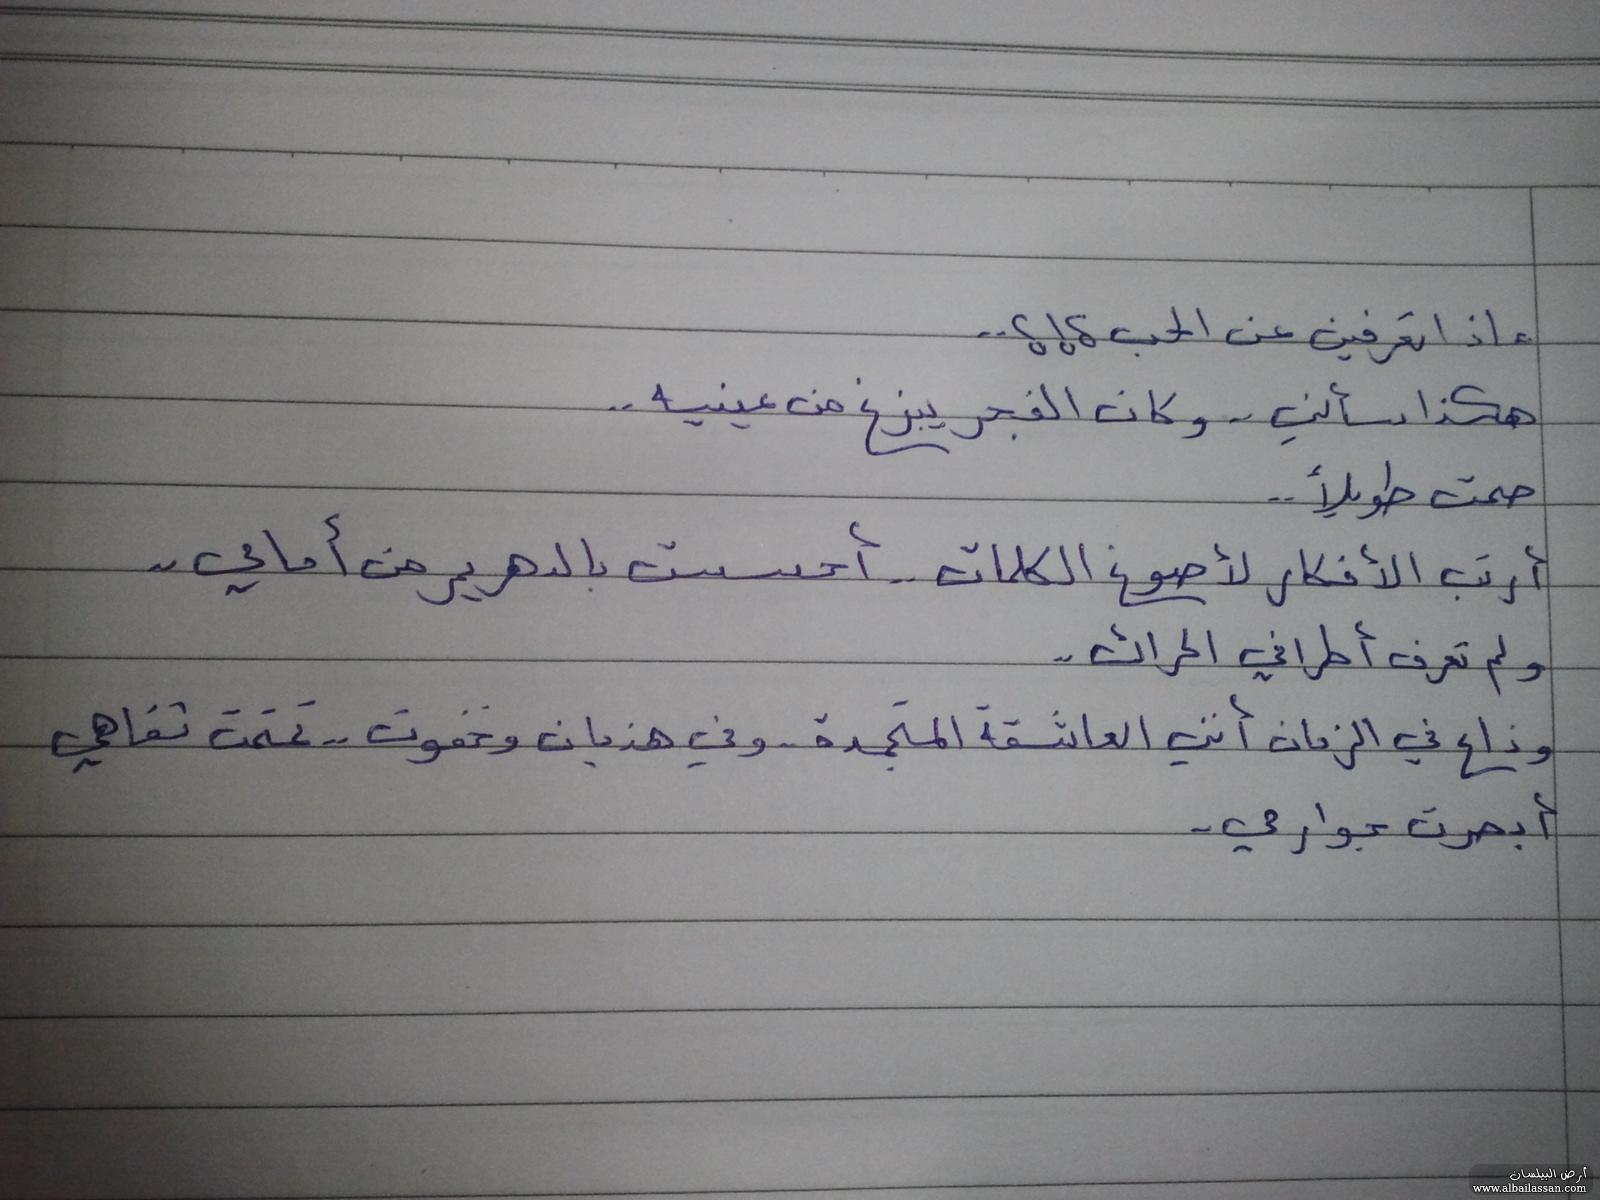 ماذا تعرفين عن الحب ؟!؟..
هكذا سألني .. وكان الفجر يبزغ من عينيه ..
صمت طويلاً ..
أرتب الأفكار لأصوغ الكلمات .. أحسست بالدهر يمر من أمامي ..
ولم تعرف أطرافي الحراك ..
وذاع في الزمان أنني العاشقة المتجمدة .. وفي هذيان وخفوت .. تمتمت شفاهي
أبحرت بجوارحي ..
أرض البيلسان
www.albailassan.com